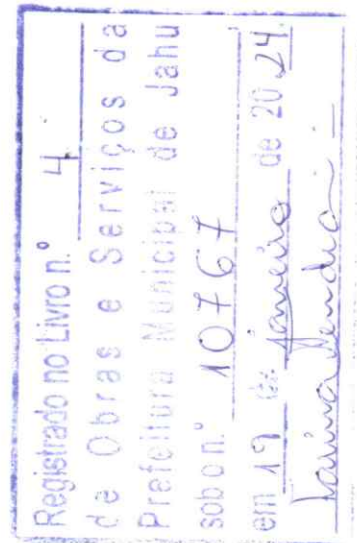 Registrado no Livro n.º 4
de Obras e Serviços da
Prefeitura Municipal de Jahu
sob o n.º 10767
em 19 de janeiro de 2024.